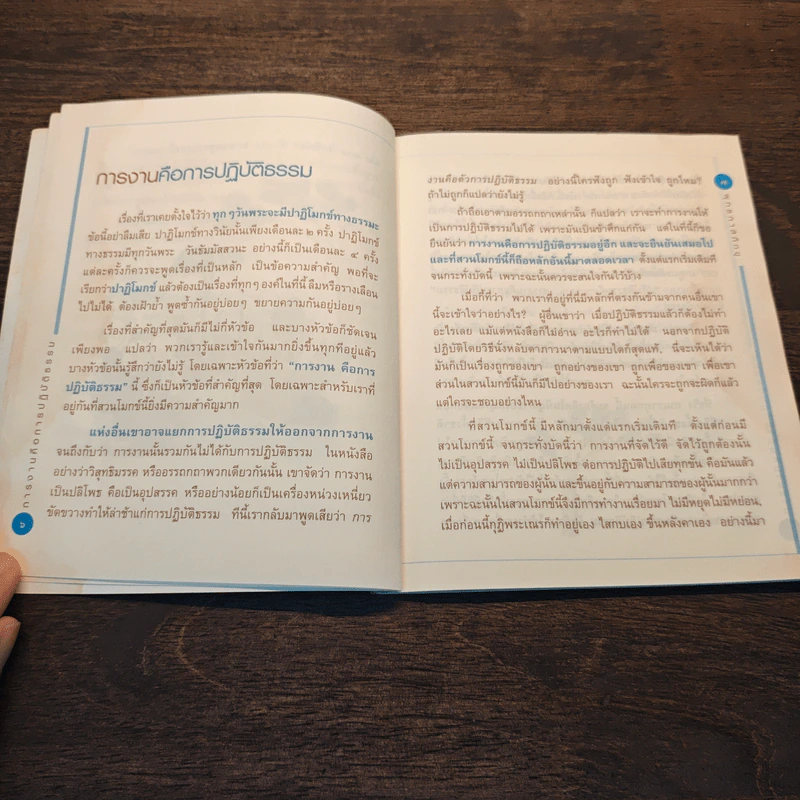 การงานคือการปฏิบัติธรรม
เรื่องที่เราเคยตั้งใจไว้ว่า ทุกๆวันพระจะมีปาฏิโมกข์ทางธรรมะ
ข้อนี้อย่าลืมเสีย ปาฏิโมกข์ทางวินัยนั้นเพียงเดือนละ ๒ ครั้ง ปาฏิโมกข์
ทางธรรมมีทุกวันพระ วันธัมมัสสวนะ อย่างนี้ก็เป็นเดือนละ ๔ ครั้ง
แต่ละครั้งก็ควรจะพูดเรื่องที่เป็นหลัก เป็นข้อความสำคัญ พอที่จะ
เรียกว่าปาฏิโมกข์ แล้วต้องเป็นเรื่องที่ทุกๆองค์ในที่นี้ ลืมหรือรางเลือน
ไปไม่ได้ ต้องเฝ้าย้ำ พูดซ้ำกันอยู่บ่อยๆ ขยายความกันอยู่บ่อยๆ
เรื่องที่สำคัญที่สุดมันก็มีไม่กี่หัวข้อ และบางหัวข้อก็ชัดเจน
เพียงพอ แปลว่า พวกเรารู้และเข้าใจกันมากยิ่งขึ้นทุกทีอยู่แล้ว
บางหัวข้อนั้นรู้สึกว่ายังไม่รู้ โดยเฉพาะหัวข้อที่ว่า “การงาน คือการ
ปฏิบัติธรรม” นี้ ซึ่งก็เป็นหัวข้อที่สำคัญที่สุด โดยเฉพาะสำหรับเราที่
อยู่กันที่สวนโมกข์นี้ยิ่งมีความสำคัญมาก
แห่งอื่นเขาอาจแยกการปฏิบัติธรรมให้ออกจากการงาน
จนถึงกับว่า การงานนั้นรวมกันไม่ได้กับการปฏิบัติธรรม ในหนังสือ
อย่างว่าวิสุทธิมรรค หรืออรรถกถาพวกเดียวกันนั้น เขาจัดว่า การงาน
เป็นปลิโพธ คือเป็นอุปสรรค หรืออย่างน้อยก็เป็นเครื่องหน่วงเหนี่ยว
ขัดขวางทำให้ล่าช้าแก่การปฏิบัติธรรม ทีนี้เรากลับมาพูดเสียว่า การ
การงานคือการปฏิบัติธรรม
๖
งานคือตัวการปฏิบัติธรรม อย่างนี้ใครฟังถูก ฟังเข้าใจ ถูกไหม?
ถ้าไม่ถูกก็แปลว่ายังไม่รู้
ถ้าถือเอาตามอรรถกถาเหล่านั้น ก็แปลว่า เราจะทำการงานให้
เป็นการปฏิบัติธรรมไม่ได้ เพราะมันเป็นข้าศึกแก่กัน แต่ในที่นี้ก็ขอ
ยืนยันว่า การงานคือการปฏิบัติธรรมอยู่อีก และจะยืนยันเสมอไป
และที่สวนโมกข์นี้ก็ถือหลักอันนี้มาตลอดเวลา ตั้งแต่แรกเริ่มเดิมที
จนกระทั่งบัดนี้ เพราะฉะนั้นควรจะสนใจกันไว้บ้าง
เมื่อกี้ที่ว่า พวกเราที่อยู่ที่นี่มีหลักที่ตรงกันข้ามจากคนอื่นเขา
นี้จะเข้าใจว่าอย่างไร? ผู้อื่นเขาว่า เมื่อปฏิบัติธรรมแล้วก็ต้องไม่ทำ
อะไรเลย แม้แต่หนังสือก็ไม่อ่าน อะไรก็ทำไม่ได้ นอกจากปฏิบัติ
ปฏิบัติโดยวิธีนั่งหลับตาภาวนาตามแบบใดก็สุดแท้, นี่จะเห็นได้ว่า
มันก็เป็นเรื่องถูกของเขา ถูกอย่างของเขา ถูกเพื่อของเขา เพื่อเขา
ส่วนในสวนโมกข์นี้มันก็มีไปอย่างของเรา ฉะนั้นใครจะถูกจะผิดก็แล้ว
แต่ใครจะชอบอย่างไหน
ที่สวนโมกข์นี้ มีหลักมาตั้งแต่แรกเริ่มเดิมที ตั้งแต่ก่อนมี
สวนโมกข์นี้ จนกระทั่งบัดนี้ว่า การงานที่จัดไว้ดี จัดไว้ถูกต้องนั้น
ไม่เป็นอุปสรรค ไม่เป็นปลิโพธ ต่อการปฏิบัติไปเสียทุกขั้น คือมันแล้ว
แต่ความสามารถของผู้นั้น และขึ้นอยู่กับความสามารถของผู้นั้นมากกว่า
เพราะฉะนั้นในสวนโมกข์นี้จึงมีการทำงานเรื่อยมา ไม่มีหยุดไม่มีหย่อน,
เมื่อก่อนนี้กุฏิพระเณรก็ทำอยู่เอง ไสกบเอง ขึ้นหลังคาเอง อย่างนี้มา
๗
พุทธทาสภิกขุ